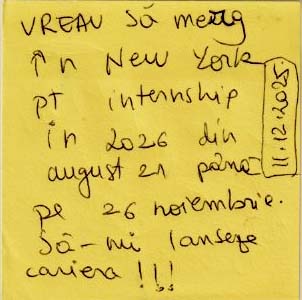 VREAU Să merg
În New York
pt internship
în 2026 din
august 21 până
pe 26 noiembrie.
Să-mi lanseze
cariera !!!
11.12.2025.